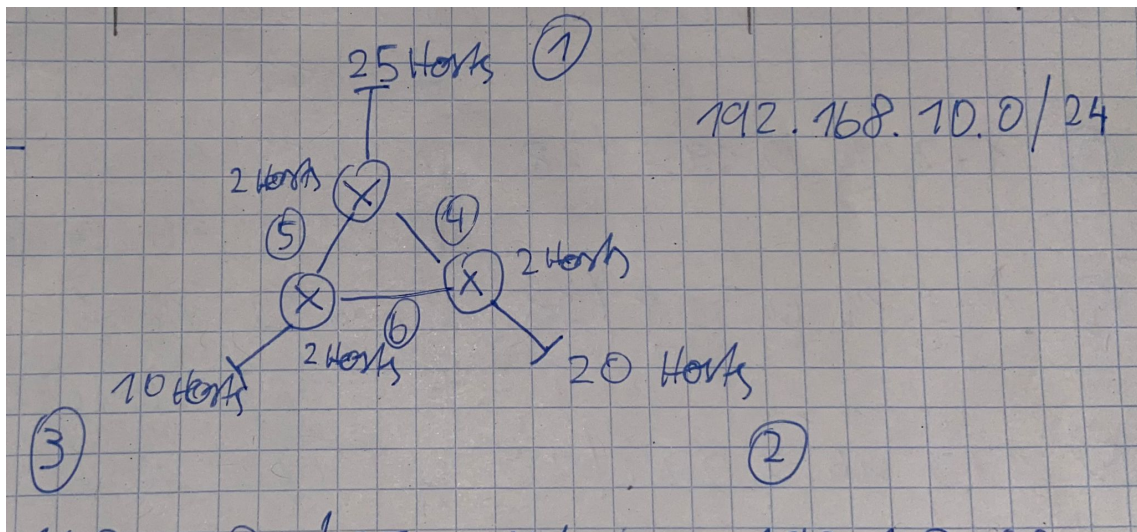 25 Hosts ①
192.168.10.0/24
2 Hosts
⑤ ④
2 Hosts
⑥
2 Hosts
10 Hosts
20 Hosts
③ ②